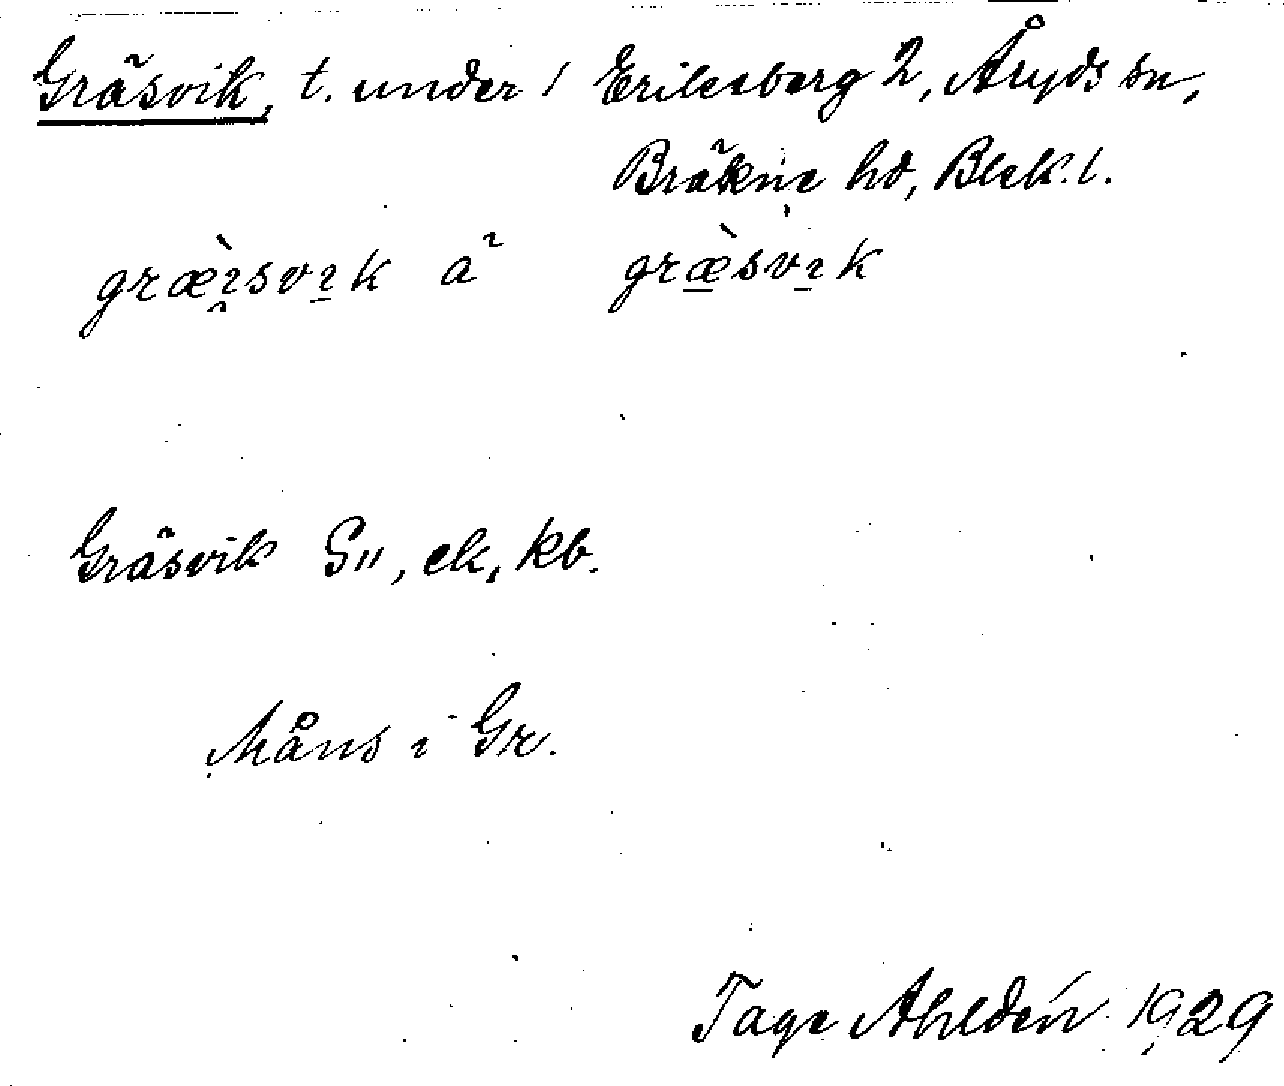 Gräsvik, t. under / Eriksberg 2, Åryds sn,
Bräkne hd, Blek. l.
græ̀ɪ̯svɪ̠k ã græ̠̀svɪ̠k
Gräsvik S", ek, kb.
Måns i Gr.
Tage Ahldén 1929